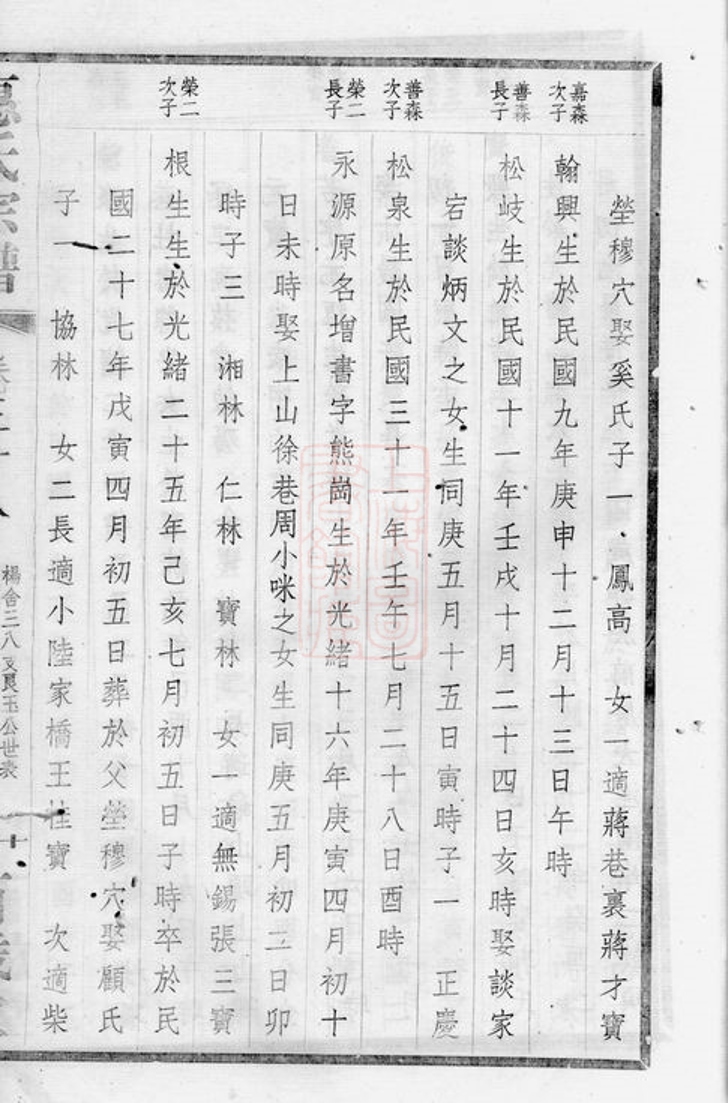 塋穆穴娶奚氏子一 鳳高 女一適蔣巷裏蔣才寶
嘉森次子
翰興生於民國九年庚申十二月十三日午時
善森長子
松岐生於民國十一年壬戌十月二十四日亥時娶談家
宕談炳文之女生同庚五月十五日寅時子一 正慶
善森次子
松泉生於民國三十一年壬午七月二十八日酉時
榮二長子
永源原名增書字熊崗生於光緒十六年庚寅四月初十
日未時娶上山徐巷周小咪之女生同庚五月初二日卯
時子三 湘林 仁林 寶林 女一適無錫張三寶
榮二次子
根生生於光緒二十五年己亥七月初五日子時卒於民
國二十七年戊寅四月初五日葬於父塋穆穴娶顧氏
子一 協林 女二長適小陸家橋王桂寶 次適柴
氏宗譜
楊舍三八支良玉公世表